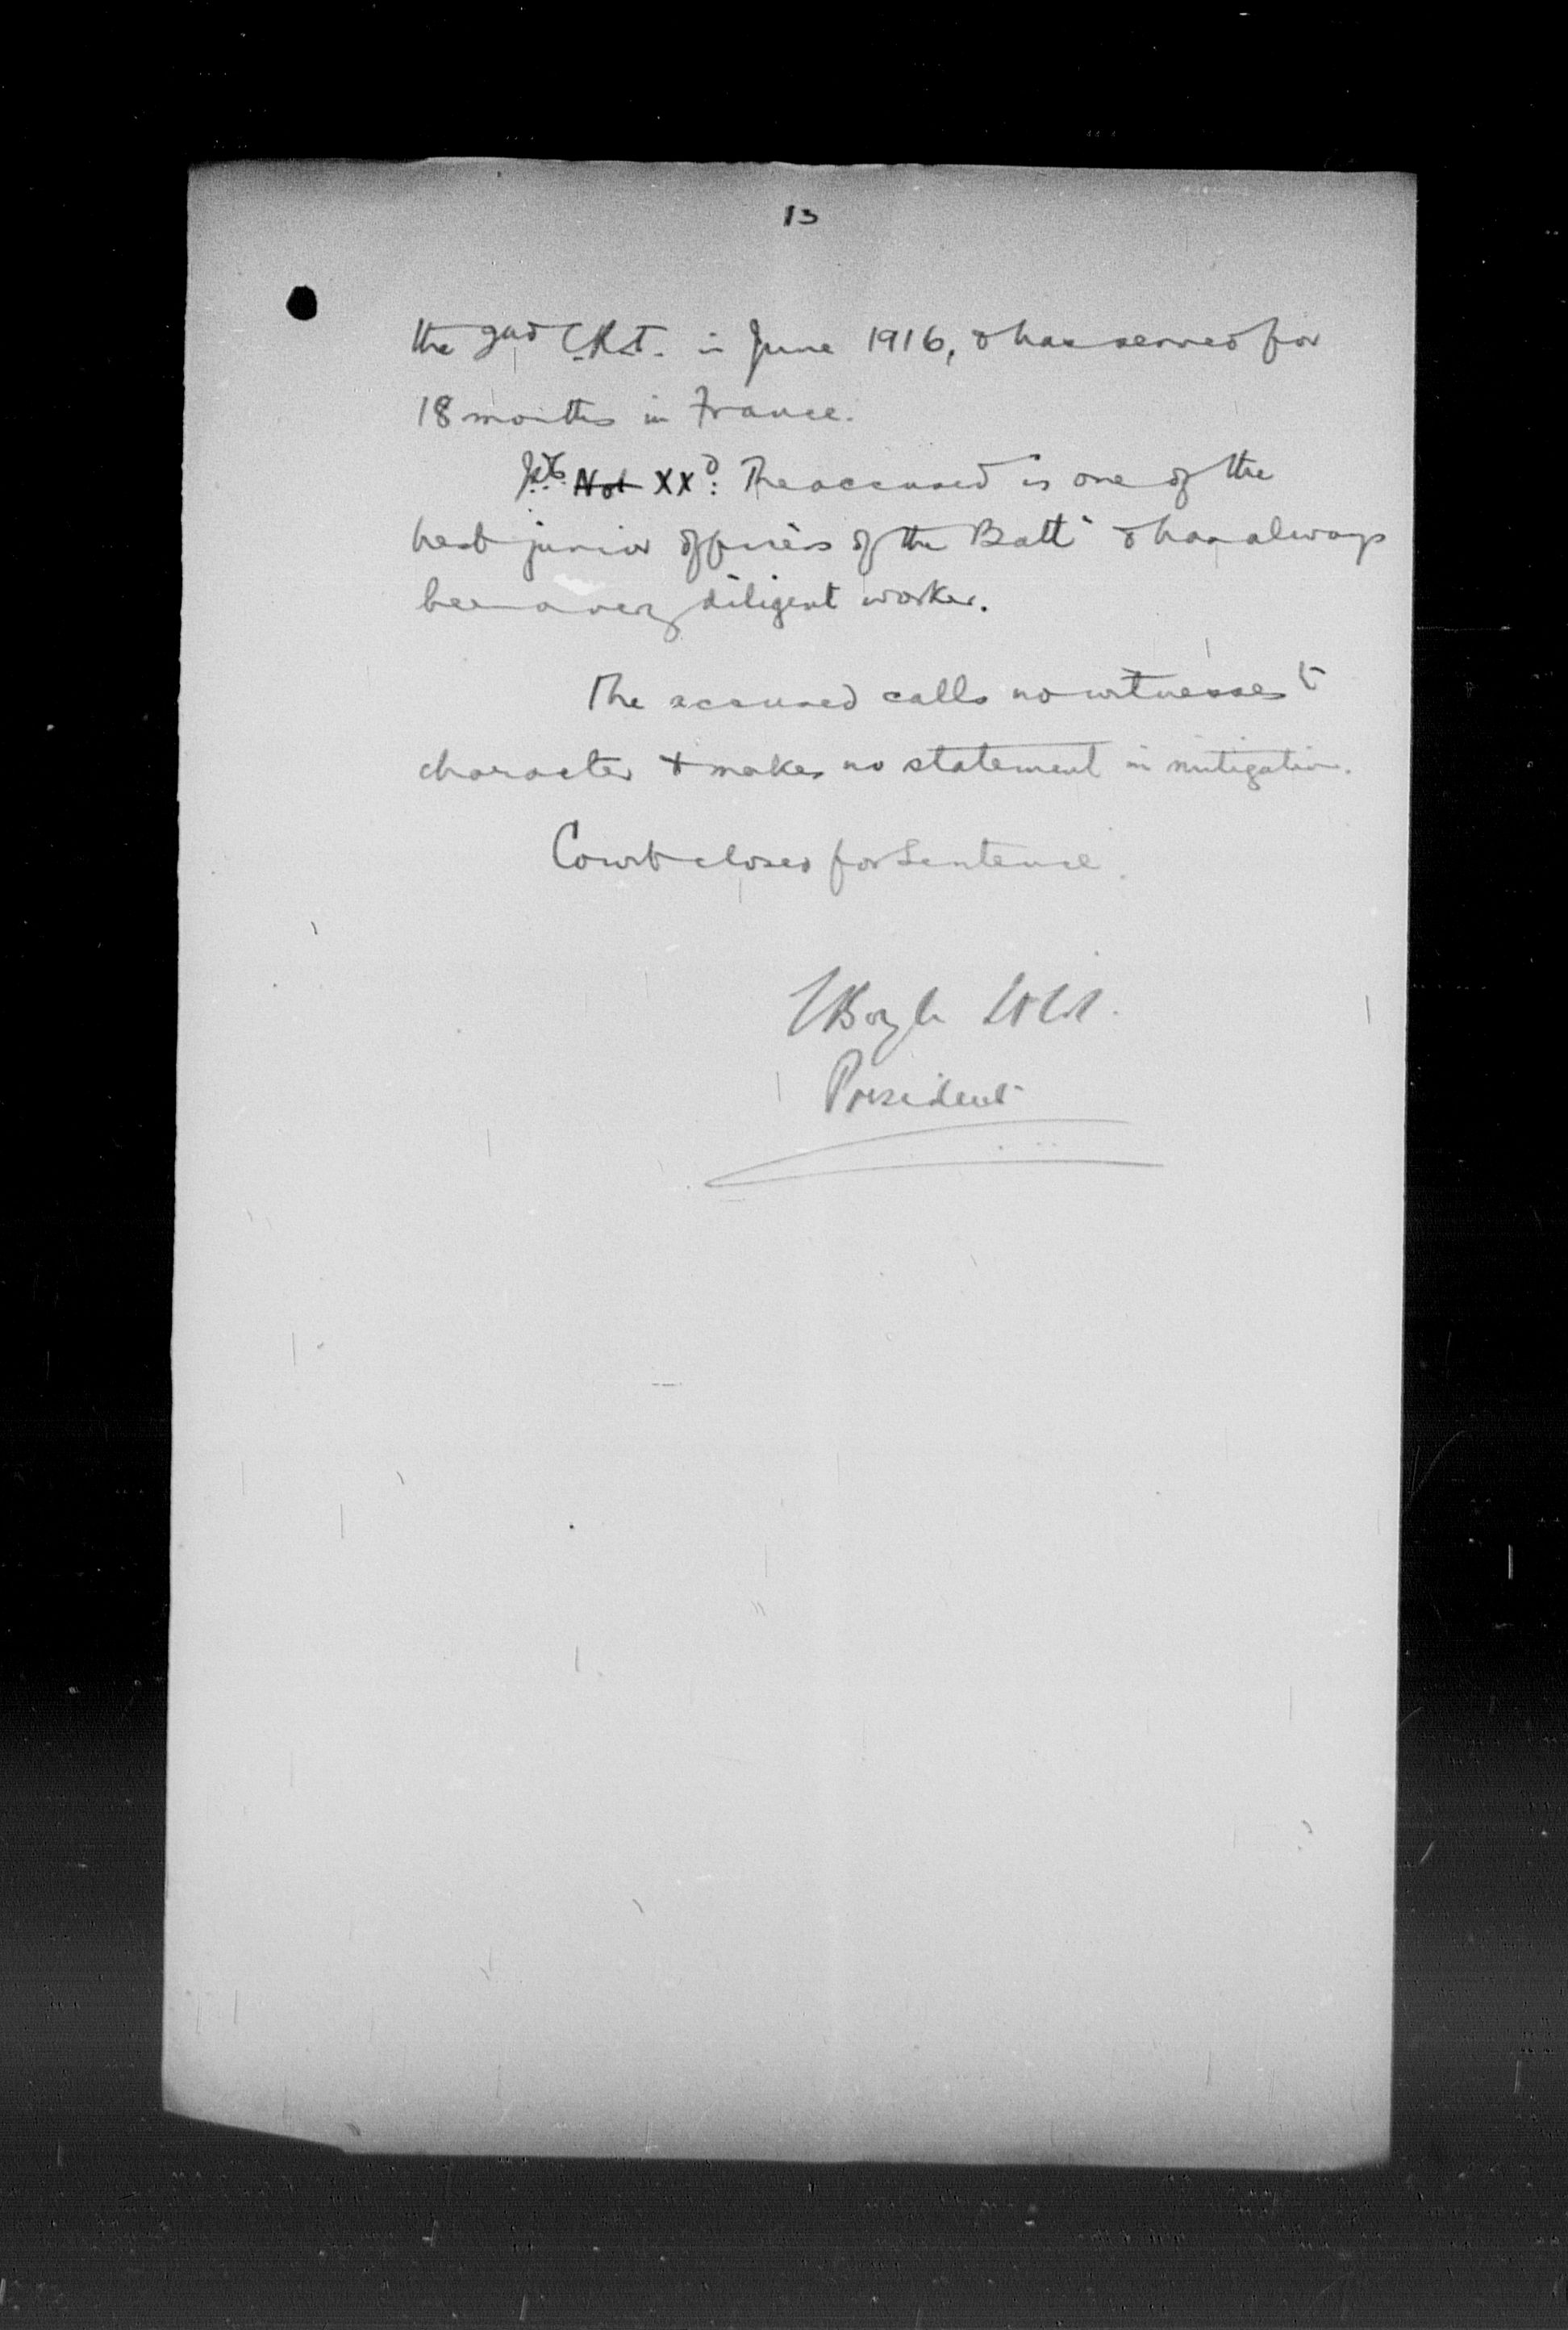 13
the 2nd C.R.T. in June 1916, & has served for
18 months in France.
Not XXd: The accused is one of the
best junior officers of the Battn & has always
been a very diligent worker.
The accused calls no witnesses to
character & makes no statement in mitigation.
Court closed for Sentence.
Boyle
President